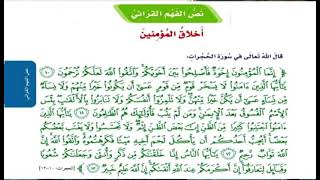 نَصُّ الفَهْمِ القُرْآنِيِّ
أَخْلَاقُ المُؤْمِنِينَ
قالَ اللهُ تَعَالَى فِي سُورَةِ الحُجُرَاتِ:
﴿ إِنَّمَا الْمُؤْمِنُونَ إِخْوَةٌ فَأَصْلِحُوا بَيْنَ أَخَوَيْكُمْ وَاتَّقُوا اللَّهَ لَعَلَّكُمْ تُرْحَمُونَ ١٠
يَا أَيُّهَا الَّذِينَ ءَامَنُوا لَا يَسْخَرْ قَوْمٌ مِّن قَوْمٍ عَسَى أَن يَكُونُوا خَيْرًا مِّنْهُمْ وَلَا نِسَاءٌ
مِّن نِّسَاءٍ عَسَى أَن يَكُنَّ خَيْرًا مِّنْهُنَّ وَلَا تَلْمِزُوا أَنفُسَكُمْ وَلَا تَنَابَزُوا بِالْأَلْقَابِ بِئْسَ
الِاسْمُ الْفُسُوقُ بَعْدَ الْإِيمَانِ وَمَن لَّمْ يَتُبْ فَأُولَئِكَ هُمُ الظَّالِمُونَ ١١ يَا أَيُّهَا الَّذِينَ
ءَامَنُوا اجْتَنِبُوا كَثِيرًا مِّنَ الظَّنِّ إِنَّ بَعْضَ الظَّنِّ إِثْمٌ وَلَا تَجَسَّسُوا وَلَا يَغْتَب بَّعْضُكُم بَعْضًا
أَيُحِبُّ أَحَدُكُمْ أَن يَأْكُلَ لَحْمَ أَخِيهِ مَيْتًا فَكَرِهْتُمُوهُ وَاتَّقُوا اللَّهَ
إِنَّ اللَّهَ تَوَّابٌ رَّحِيمٌ ١٢ يَا أَيُّهَا النَّاسُ إِنَّا خَلَقْنَاكُم مِّن ذَكَرٍ وَأُنثَى وَجَعَلْنَاكُمْ شُعُوبًا
وَقَبَائِلَ لِتَعَارَفُوا إِنَّ أَكْرَمَكُمْ عِندَ اللَّهِ أَتْقَاكُمْ إِنَّ اللَّهَ عَلِيمٌ خَبِيرٌ ١٣ ﴾ (الحجرات: ١٠-١٣)